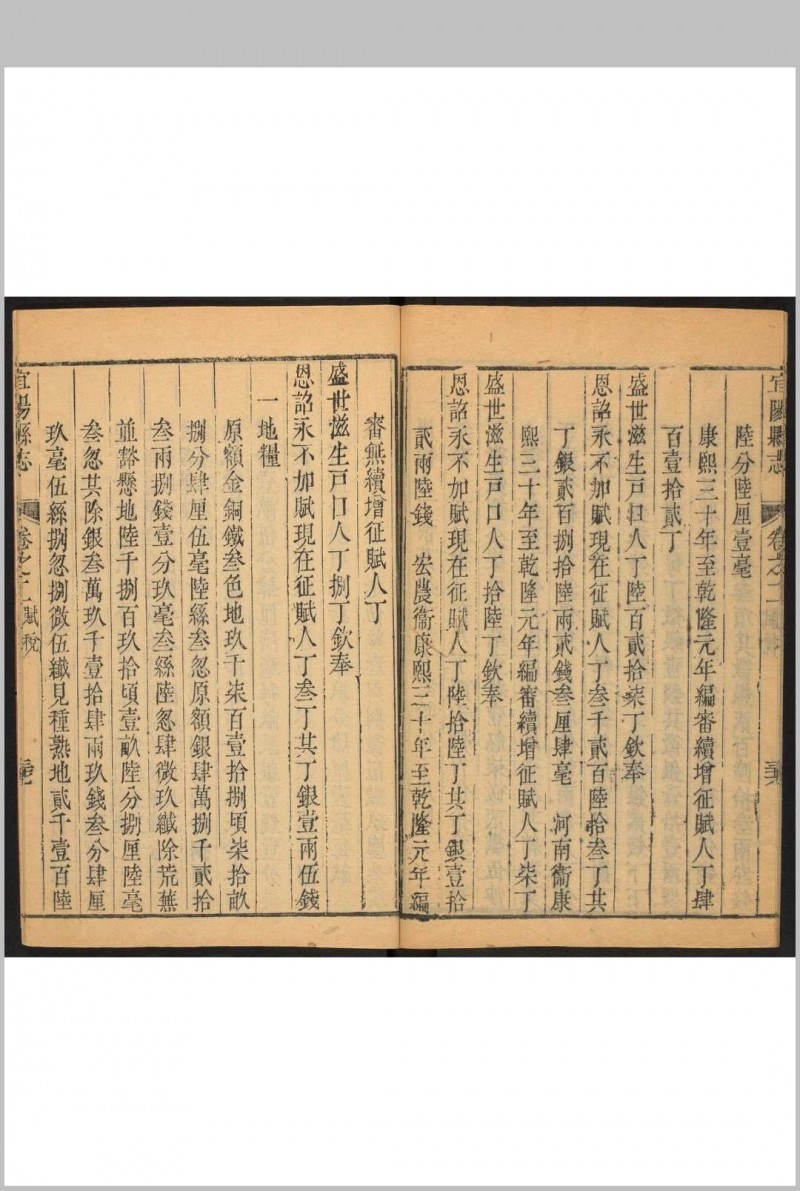 宜陽縣志 卷之二
陸分陸厘壹毫
康熙三十年至乾隆元年編審續增征賦人丁肆
百壹拾貳丁
盛世滋生戸口人丁陸百貳拾柒丁欽奉
恩詔永不加賦現在征賦人丁叁千貳百陸拾叁丁共
丁銀貳百捌拾陸兩貳錢叁厘肆毫 河南衞康
熙三十年至乾隆元年編審續增征賦人丁柒丁
盛世滋生戸口人丁拾陸丁欽奉
恩詔永不加賦現在征賦人丁陸拾陸丁共丁銀壹拾
貳兩陸錢 宏農衞康熙三十年至乾隆元年編
審無續增征賦人丁
盛世滋生戸口人丁捌丁欽奉
恩詔永不加賦現在征賦人丁叁丁共丁銀壹兩伍錢
一地糧
原額金銅鐵叁色地玖千柒百壹拾捌頃柒拾畝
捌分肆厘伍毫陸絲叁忽原額銀肆萬捌千貳拾
叁兩捌錢壹分玖毫叁絲陸忽肆微玖纖除荒蕪
並豁懸地陸千捌百玖拾頃壹畝陸分捌厘陸毫
叁忽共除銀叁萬玖千壹拾肆兩玖錢叁分肆厘
玖毫伍絲捌忽捌微伍纖見種熟地貳千壹百陸
宜陽縣志 卷之二 賦稅